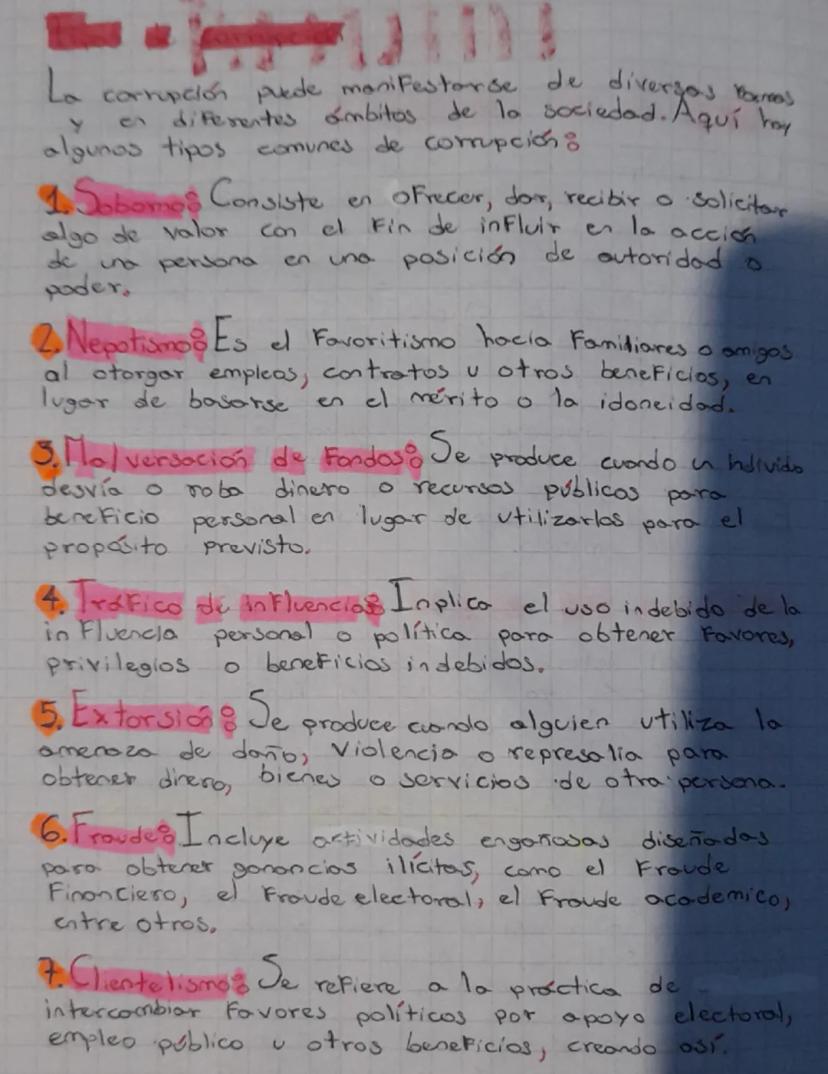 La corrupción puede manifestarse de diversas formas
y en diferentes ámbitos de la sociedad. Aquí hay
algunos tipos comunes de corrupción:
1. Soborno: Consiste en ofrecer, dar, recibir o solicitar
algo de valor con el fin de influir en la acción
de una persona en una posición de autoridad o
poder.
2. Nepotismo: Es el favoritismo hacia familiares o amigos
al otorgar empleos, contratos u otros beneficios, en
lugar de basarse en el mérito o la idoneidad.
3. Malversación de fondos: Se produce cuando un individo
desvía o roba dinero o recursos públicos para
beneficio personal en lugar de utilizarlos para el
proposito previsto.
4. Tráfico de influencias: Inplica el uso indebido de la
influencia personal o política para obtener favores,
privilegios o beneficios indebidos.
5. Extorsión: Se produce cuando alguien utiliza la
amenaza de daño, violencia o represalia para
obtener dinero, bienes o servicios de otra persona.
6. Fraude: Incluye actividades engañosas diseñadas
para obtener ganancias ilícitas, como el fraude
financiero, el fraude electoral, el fraude academico,
entre otros.
7. Clientelismo: Se refiere a la práctica de
intercambiar favores políticos por apoyo electoral,
empleo público u otros beneficios, creando así.